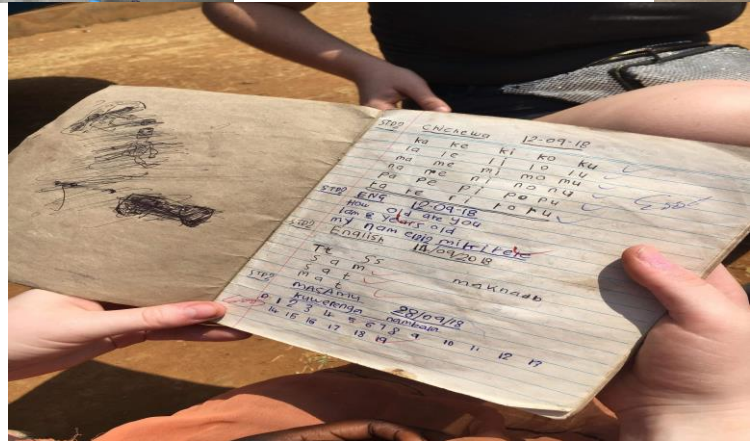 STD2 CNchewa 12-09-18
ka ke ki ko ku
la le li lo lu
ma me mi mo mu
na ne ni no nu
pa pe pi po pu
ta te ti to tu
STD2 ENG 12-09-18
How old are you
I am 8 years old
my name is
English 14/09/2018
Tt Ss
s a m
s a t
m a t
maKnadb
STD2 MACAMU 28/09/18
Kuwerenga nambala
0 1 2 3 4 5 6 7 8 9 10 11 12 13
14 15 16 17 18 19